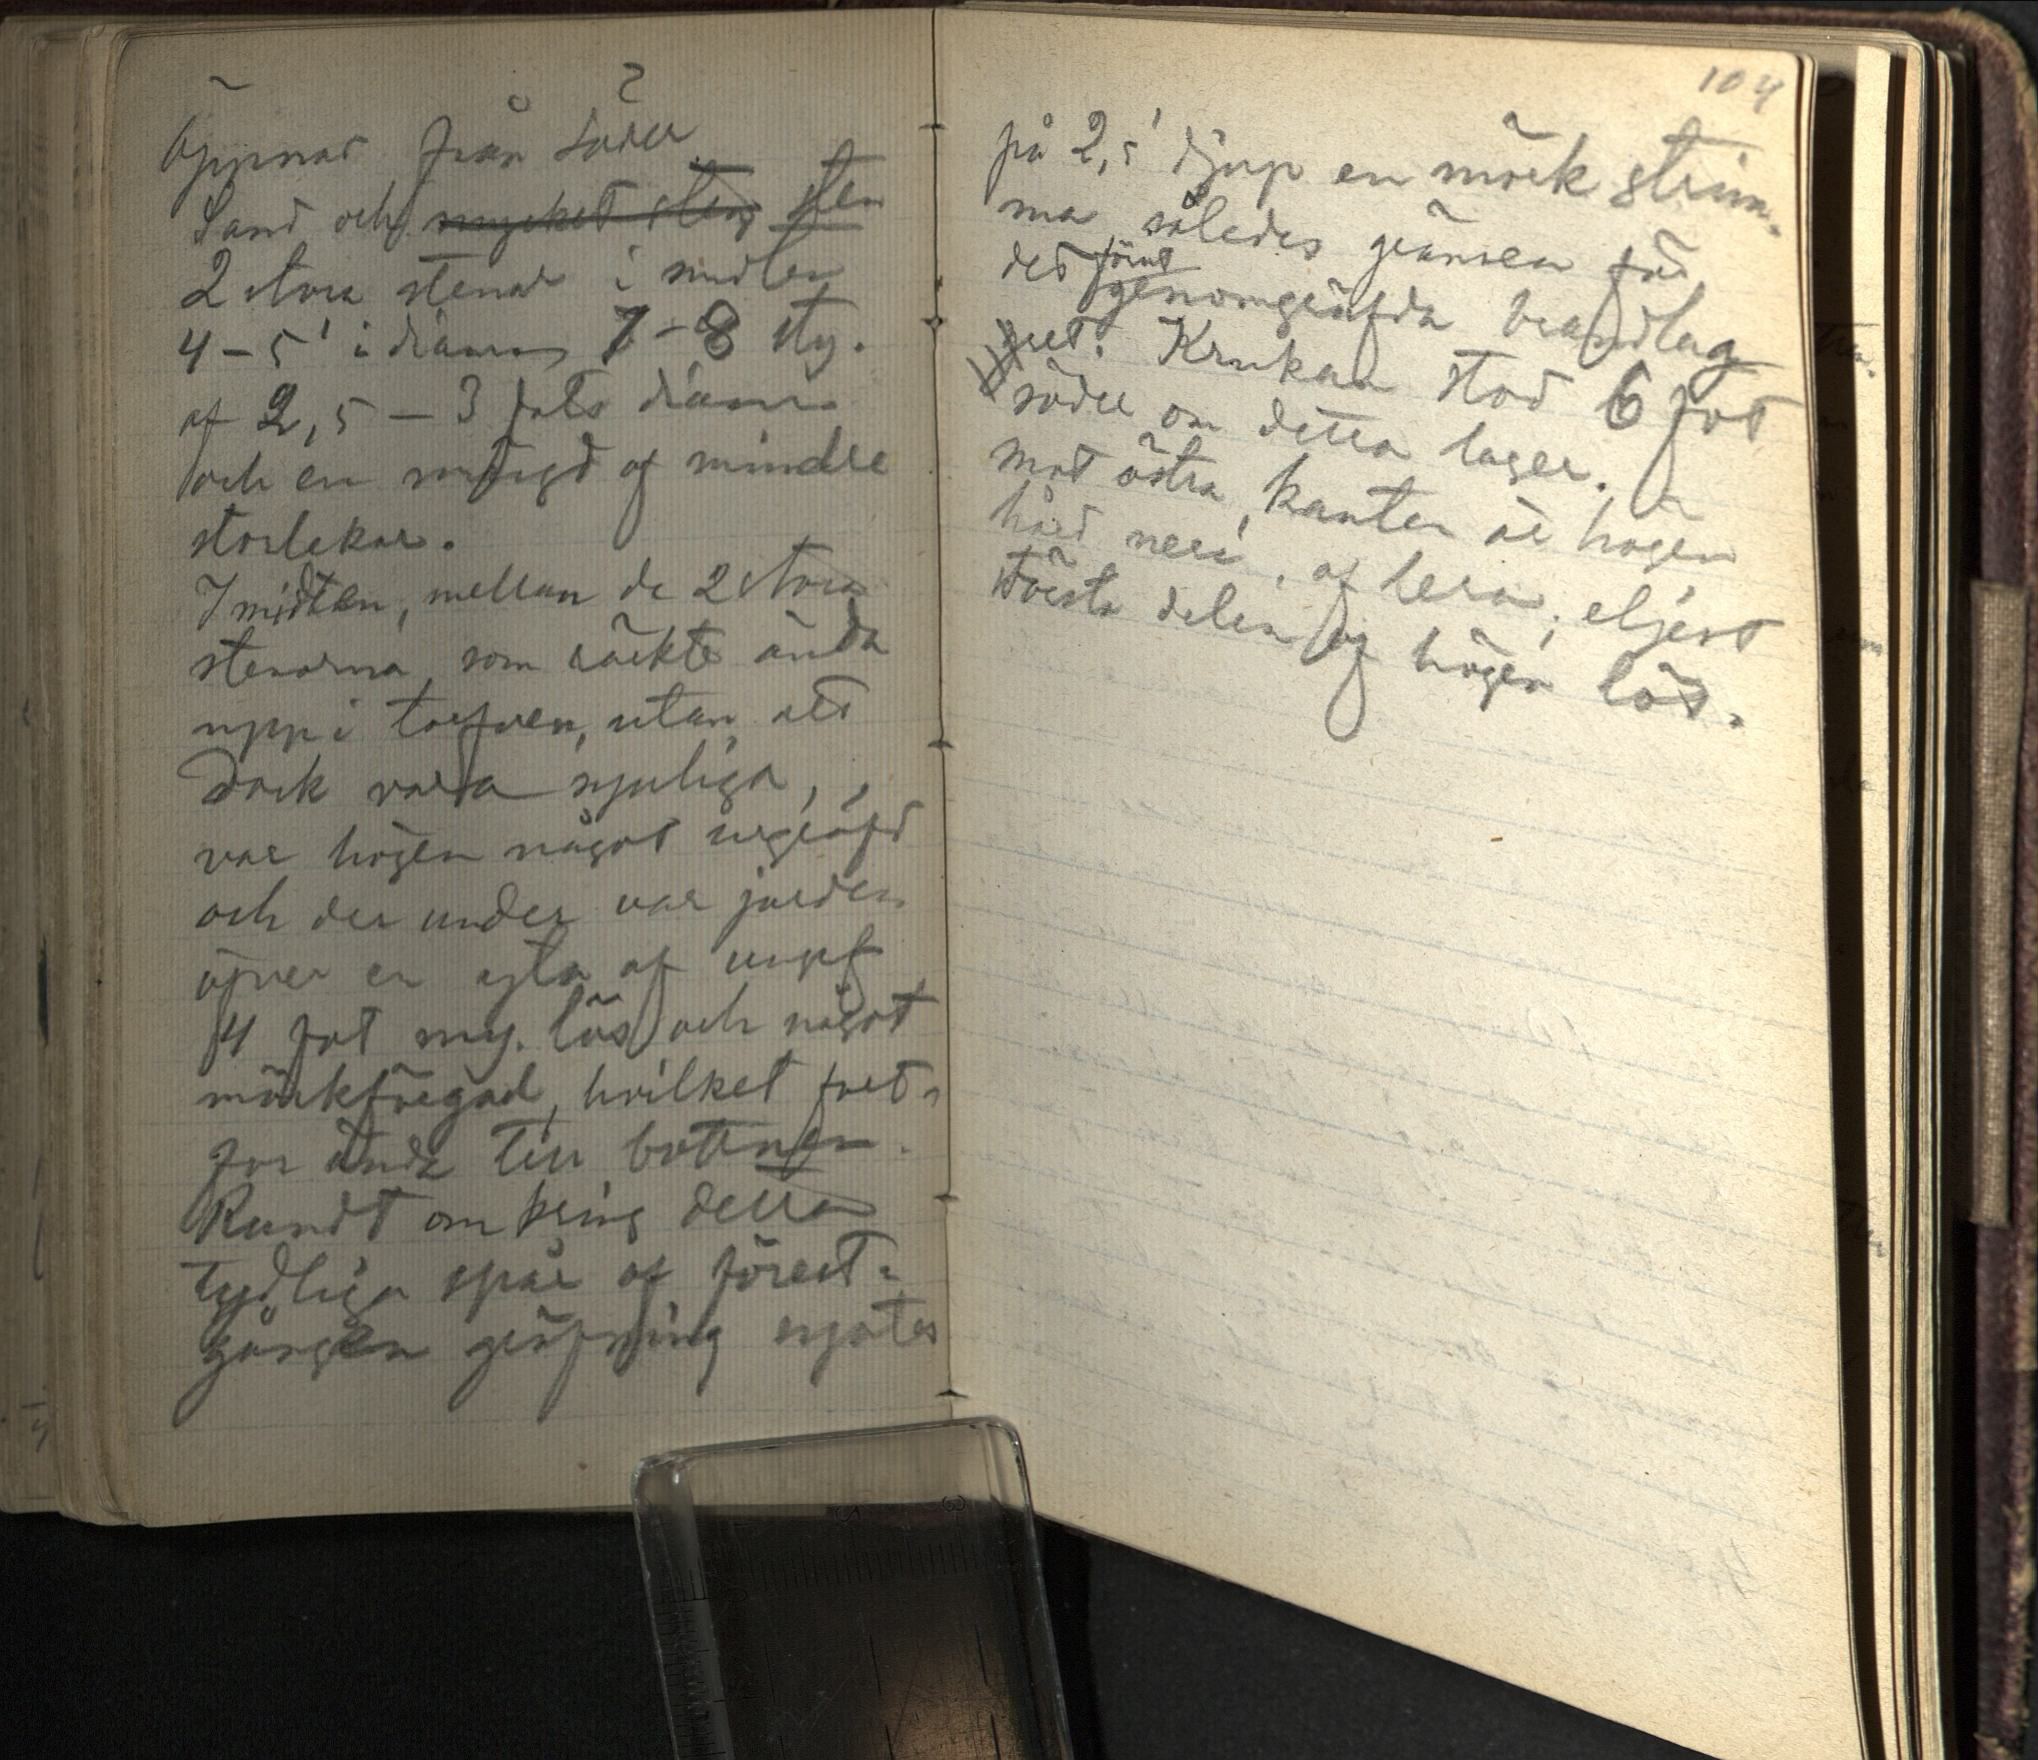 Öppnad från söder
Sand och mycket sten sten
2 stora stenar i midten
4 – 5' i diam, 7 – 8 sty.
af 2,5 – 3 fots diam.
och en mängd af mindre
storlekar.
I midten, mellan de 2 stora
stenarna, som räckte ända
upp i torfven, utan att
dock vara synliga,
var högen något urgräfd
och der under var jorden
öfver en yta af ungf
4 fot my. lös och något
mörkfärgad, hvilket fort-
for ända till bottnen.
Rundt omkring detta
tydliga spår af föreut-
gången gräfning syntes
104
på 2,5' djup en mörk strim-
ma, således gränsen för
det förut
genomgräfda brandlag
ret. Krukan stod 6 fot
söder om detta lager.
Mot östra kanten är högen
hård neri, af lera, eljest
största delen af högen lös.